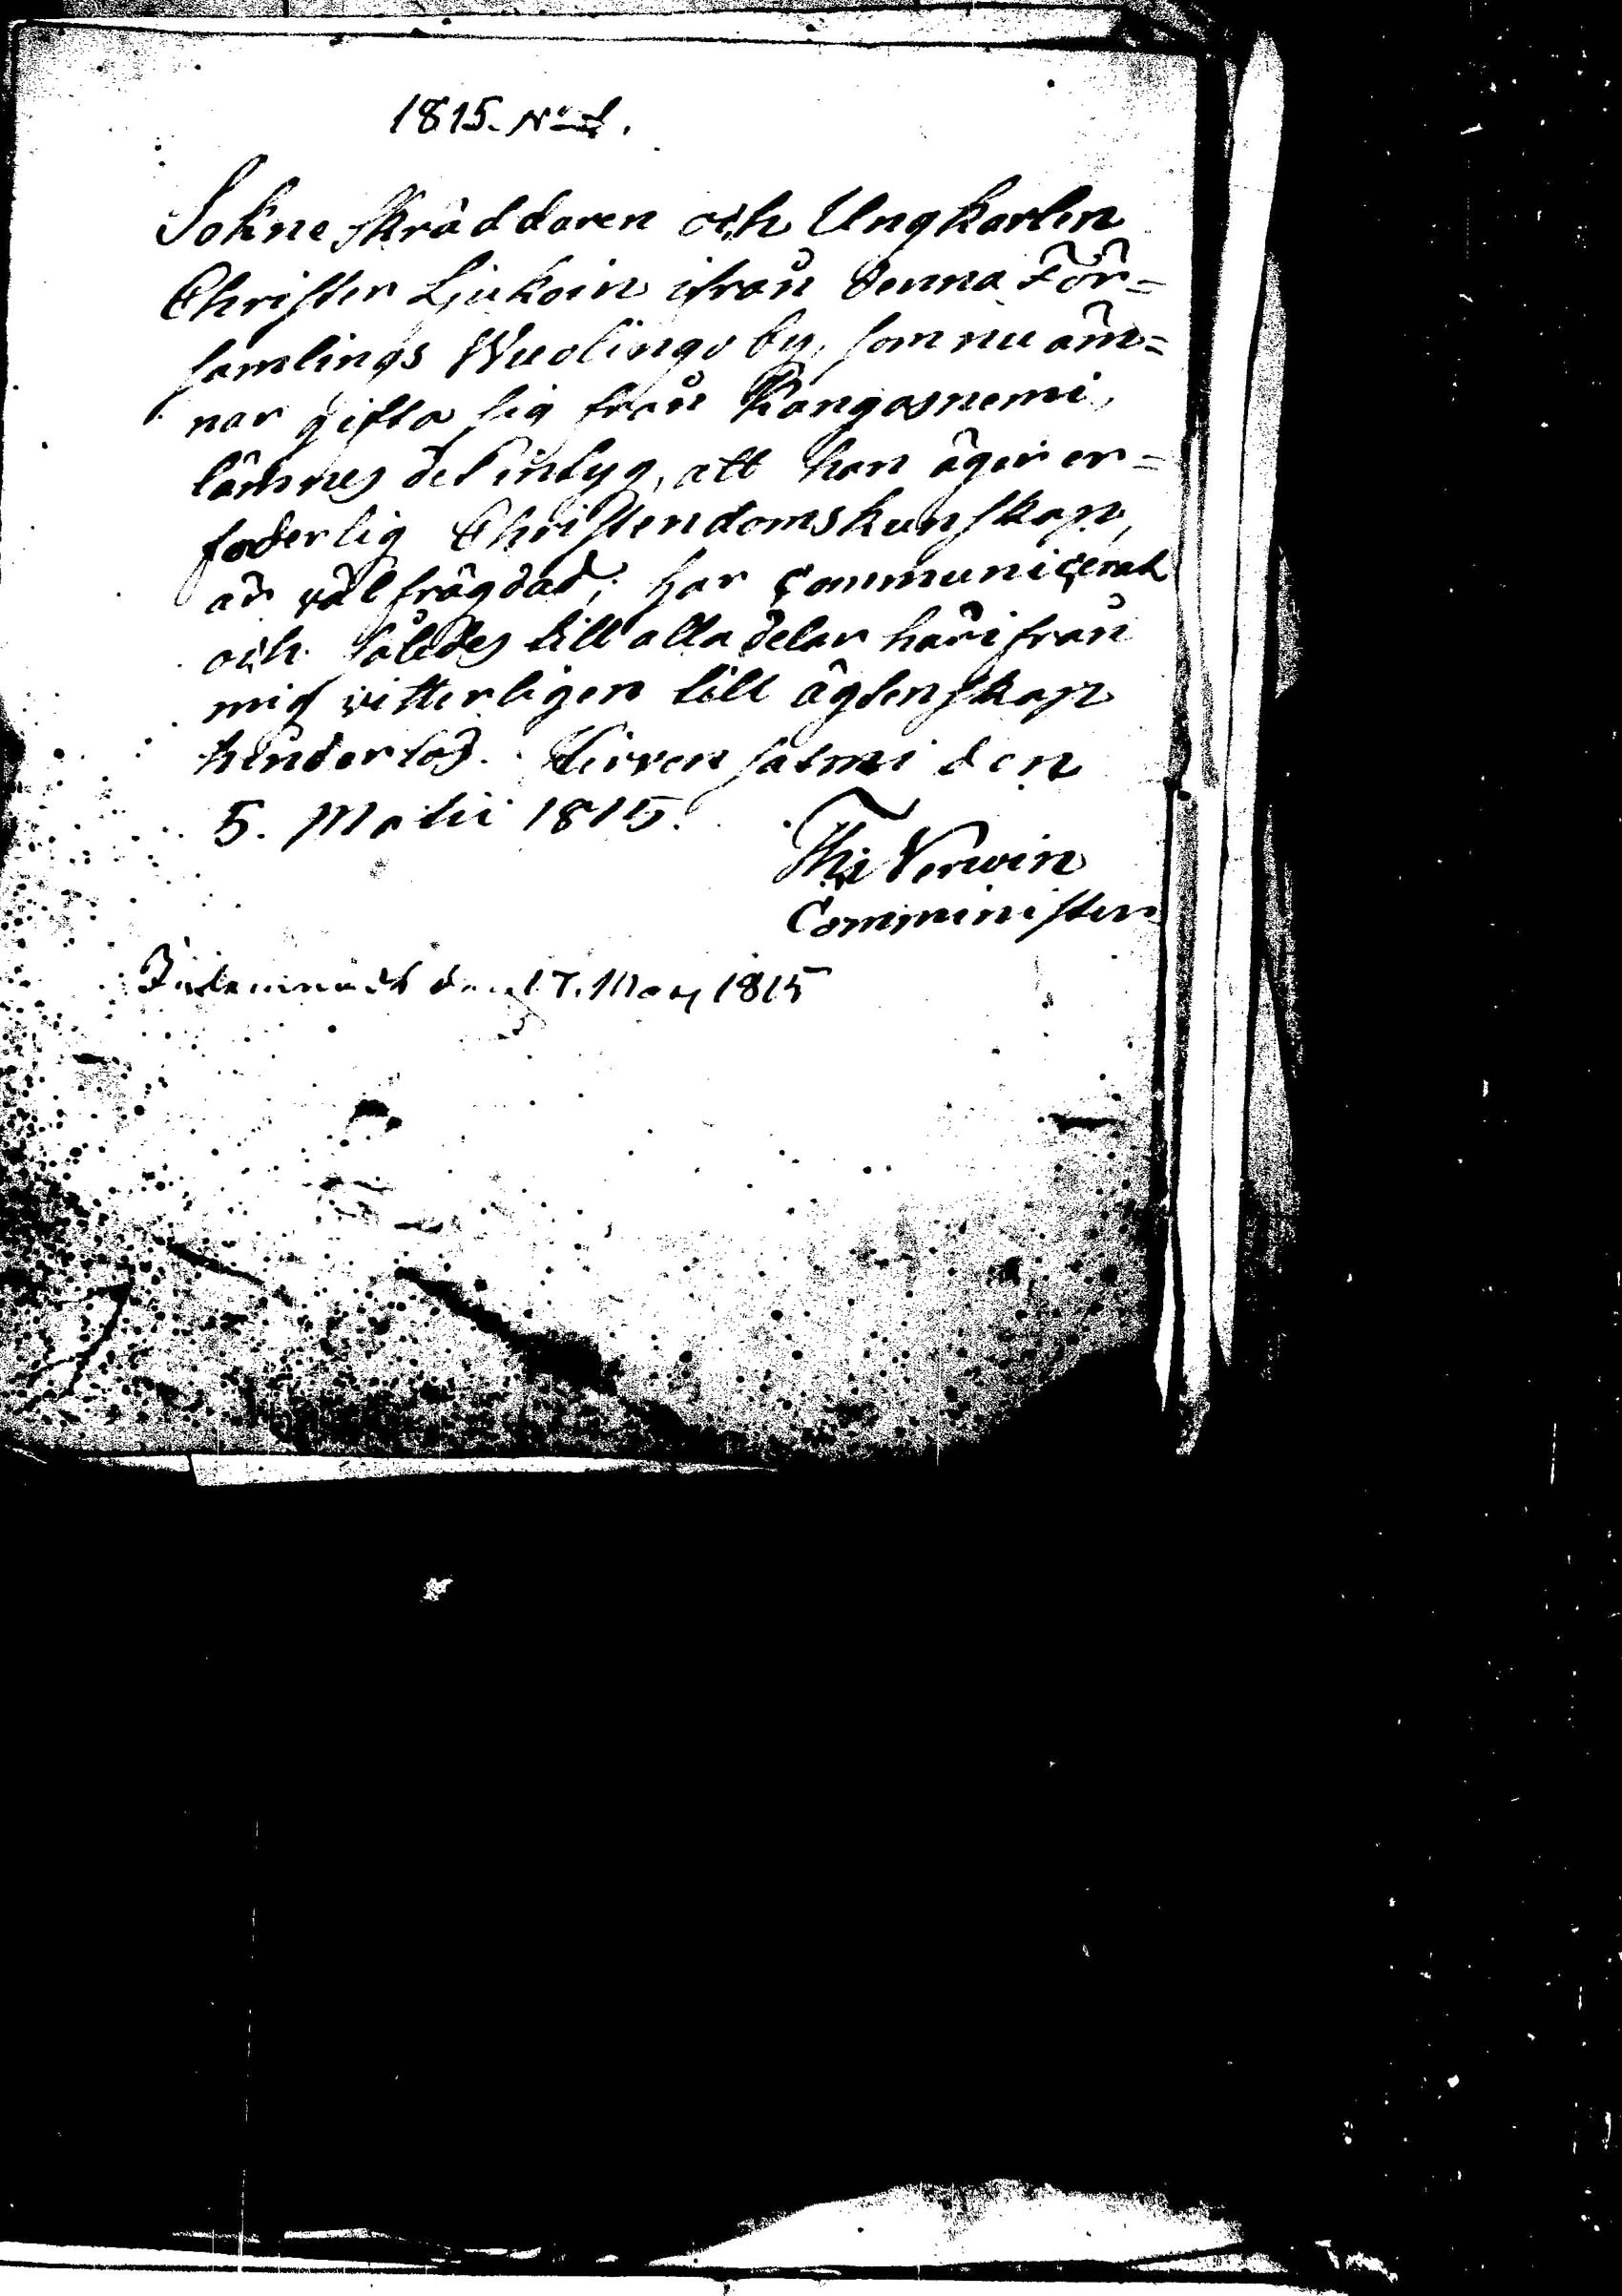 1815. N:o 1.
Sokneskräddaren och Ungkarlen
Christer Liukoin ifrån denna För=
samlings Wuolingo by, som nu äm=
nar gifta sig från Kangasnemi,
lämnes det intyg, att han äger er=
foderlig Christendomskunskap,
är välfrägdad; har communicerat
och således till alla delar härifrån
mig vitterligen till ägtenskap
hinderlös. Hirvensalmi den
5. Martii 1815.
Ths Verwin
Comminister
den 17. May 1815